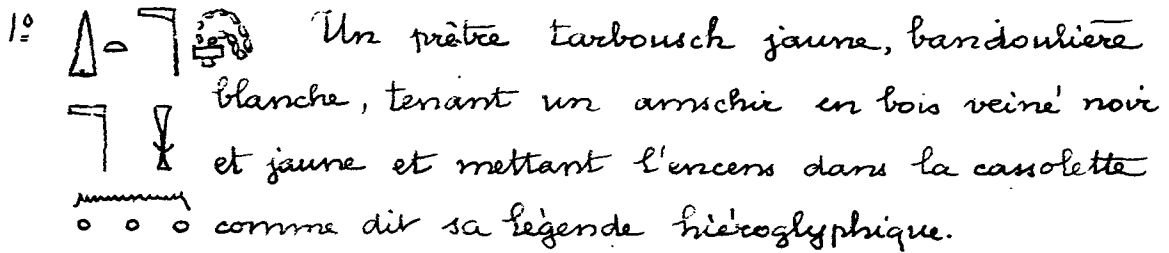 1º Un prêtre tarbousch jaune, bandoulière
blanche, tenant un amschir en bois veiné noir
et jaune et mettant l'encens dans la cassolette
comme dit sa légende hiéroglyphique.